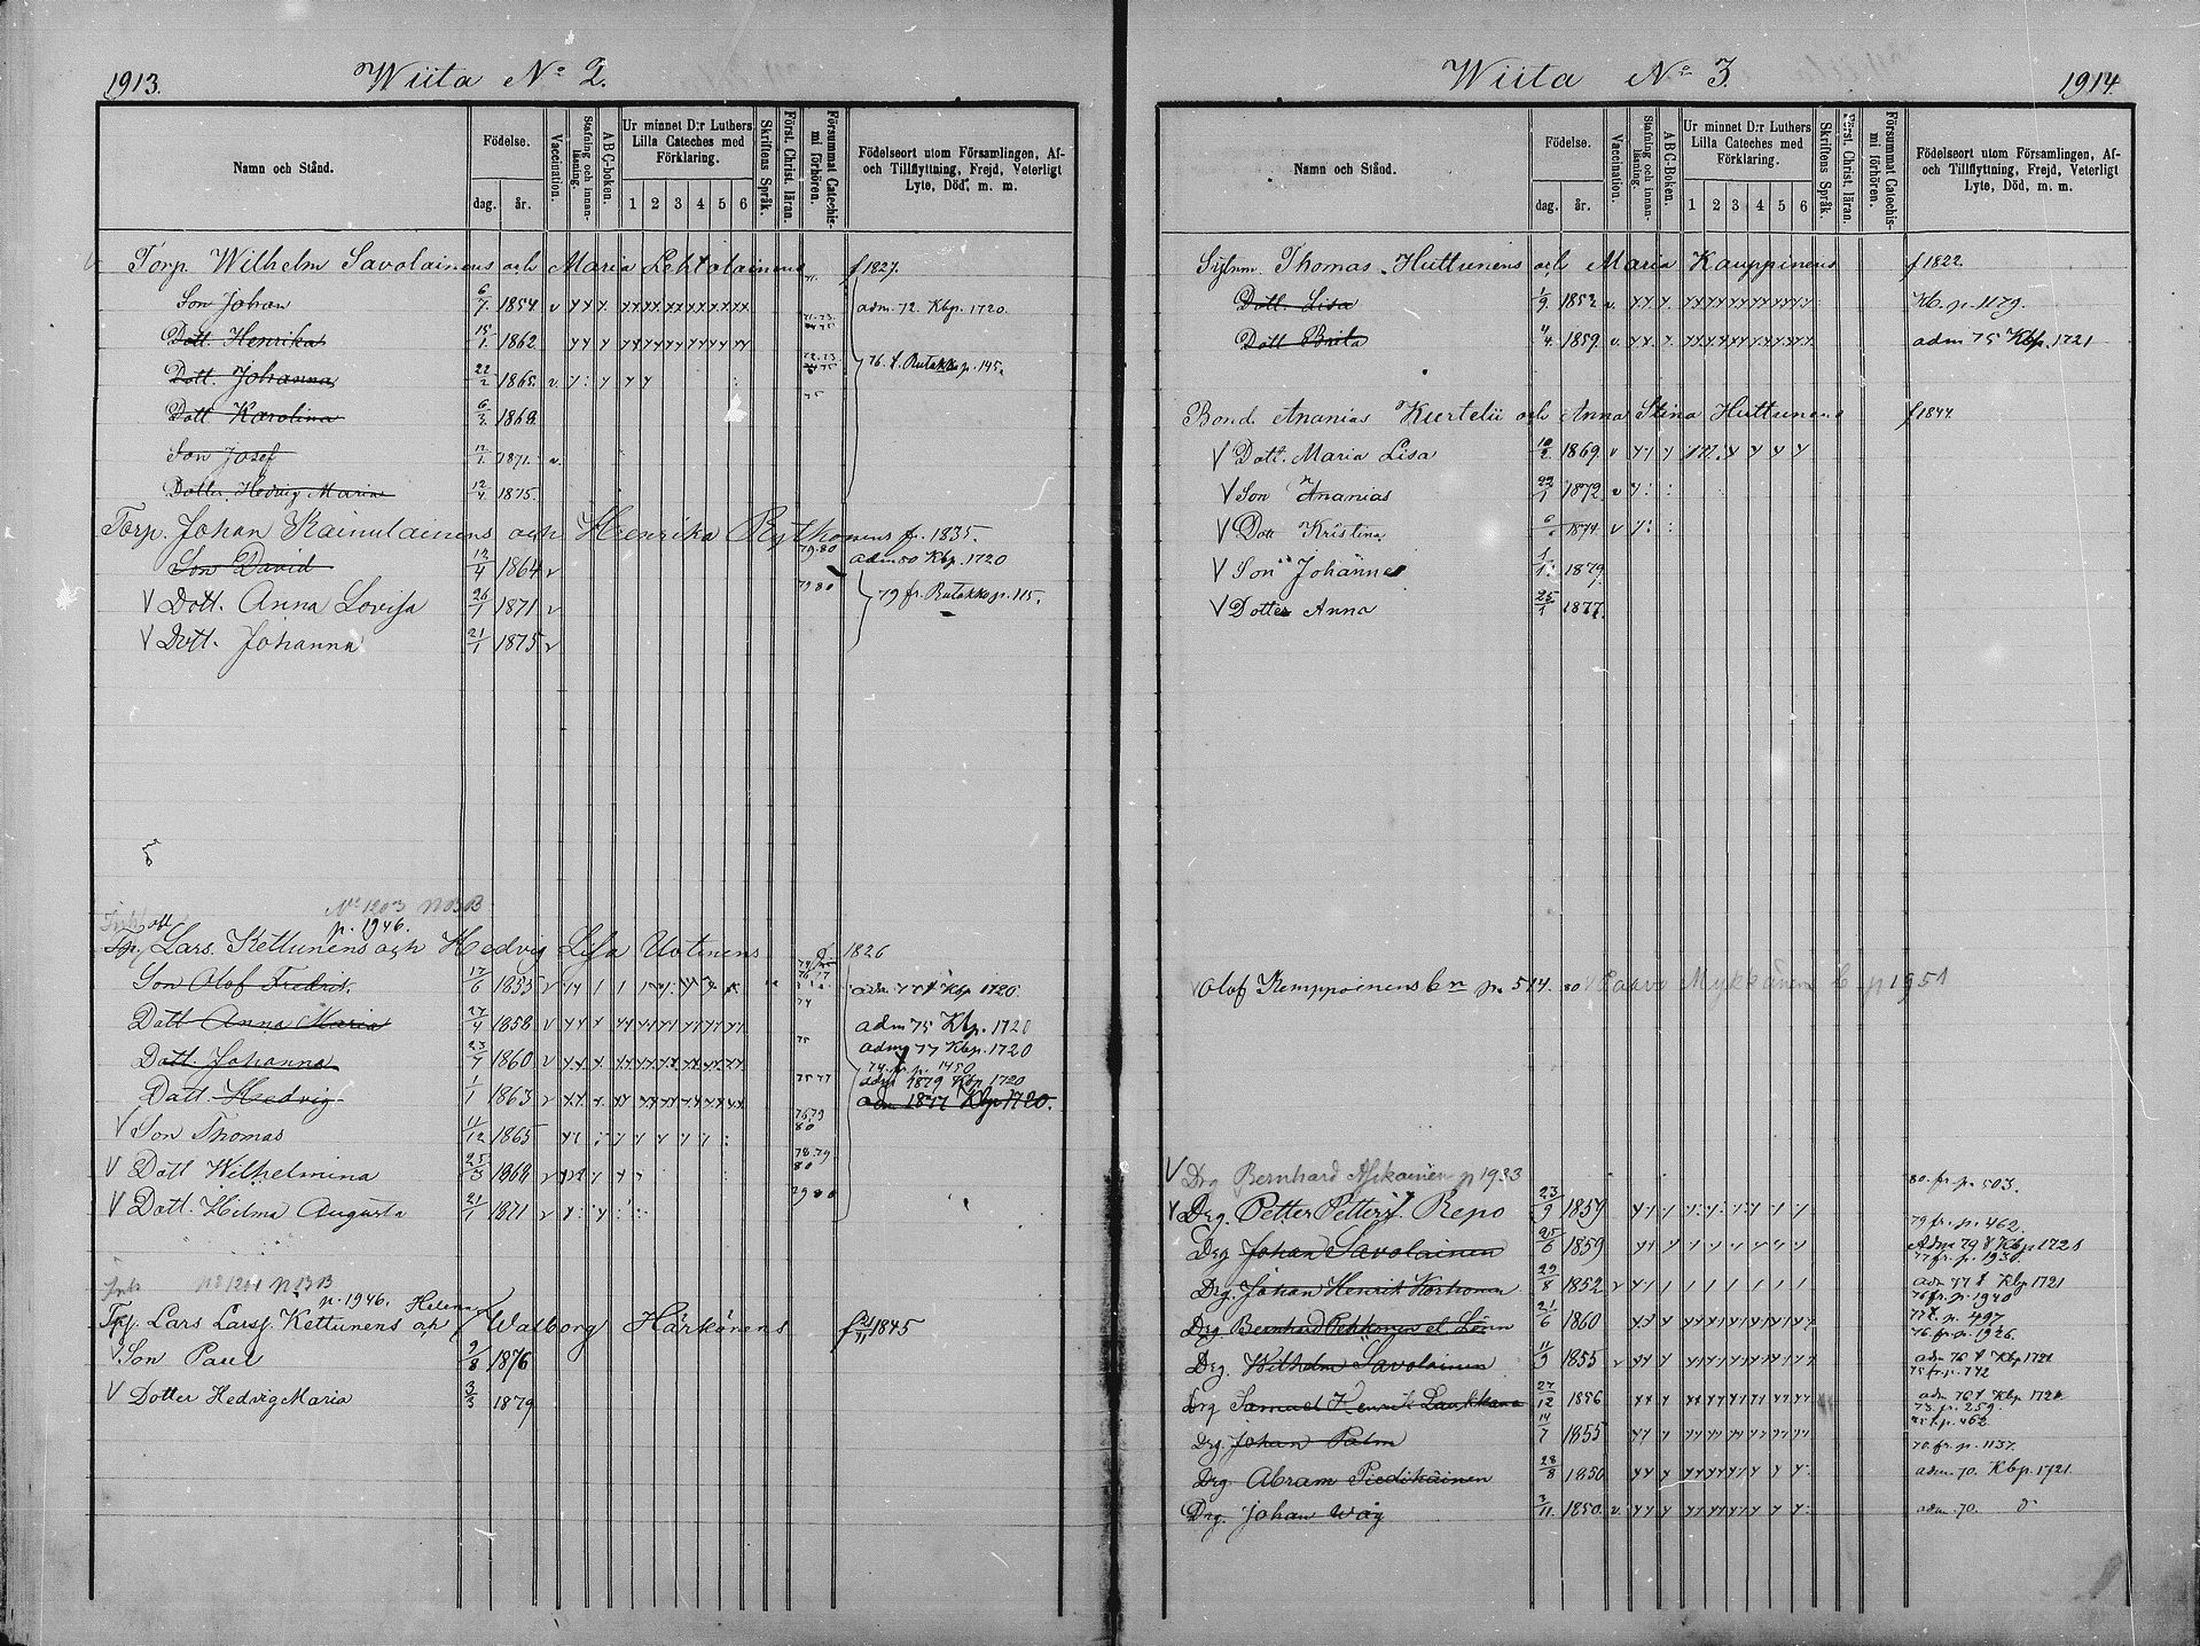 1913.
Wiita No 2.
Namn och Stånd.
Födelse.
dag.
år.
Vaccination.
Stafning och innan-läsning.
ABC-boken.
Ur minnet D:r Luthers
Lilla Cateches med
Förklaring.
1 2 3 4 5 6
Skriftens Språk.
Först. Christ. läran.
Försummat Catechis-mi förhören.
Födelseort utom Församlingen, Af-
och Tillflyttning, Frejd, Veterligt
Lyte, Död, m. m.
Torp. Wilhelm Savolainens och Maria Lektolainens f 1827.
Son Johan 6/7. 1854 v adm. 72. Kbp. 1720.
Dott. Henrika 15/1. 1862
Dott. Johanna 22/2 1865. v. 76. f. Rutakko p. 145.
Dott Karolina 6/3. 1869.
Son Josef 12/1. 1871. v.
Dotter Hedvig Maria 12/4 1875.
Torp. Johan Rainulainens och Henrika Rytkönens f. 1835.
Son David 12/4 1864 v 79.80 adm 80 Kbp. 1720
V Dott. Anna Lovisa 26/1 1871 v 79 80 79 fr. Rutakko p. 115.
V Dott. Johanna 21/1 1875 v
p. 1946.
Lars. Kettunens och Hedvig Lisa Uotinens f 1826
Son Olof Fredrik. 17/6 1855 v Kbp 1720.
Dott Anna Maria 27/4 1858 v adm 75 Kbp. 1720
Dott. Johanna 23/7 1860 v 75 adm 77 Kbp. 1720
74. fr. p. 1450
Dott. Hedvig 1/1 1863 v 75 77 adm 1879 Kbp 1720
adm 1877 Kbp 1720.
V Son Thomas 11/12 1865 76.79 80
V Dott Wilhelmina 25/3 1868 v 78.79 80
V Dott. Hilma Augusta 21/1 1871 v 79 80
p. 1946. Helena
Lars Larsj. Kettunens och Walborg Härkönens f 2/11 1845
V Son Paul 9/8 1876
V Dotter Hedvig Maria 3/3 1879
Wiita No 3.
1914.
Namn och Stånd.
Födelse.
dag.
år.
Vaccination.
Stafning och innan-läsning.
ABC-Boken.
Ur minnet D:r Luthers
Lilla Cateches med
Förklaring.
1 2 3 4 5 6
Skriftens Språk.
Först. Christ. läran.
Försummat Catechis-mi förhören.
Födelseort utom Församlingen, Af-
och Tillflyttning, Frejd, Veterligt
Lyte, Död, m. m.
Sytnm. Thomas Huttunens och Maria Kauppinens f 1822.
Dott. Lisa 1/9. 1852 v. Kb. p. 1179.
Dott Brita 4/4. 1859. v. adm 75 Kbp. 1721
Bond. Ananias Kurtelii och Anna Stina Huttunens f 1844.
V Dott. Maria Lisa 10/2. 1869. v
V Son Ananias 22/1 1872 v
V Dott Kristina 1874. v
V Son Johannes 1/1. 1879.
V Dotter Anna 25/1 1877.
Olof Kemppainens p. 514. 80 Paavo Mykkänen p 1951
V Drg Bernhard Asikainen p 1933 80. fr. p. 503.
V Drg. Petter Pettersj. Repo 23/9 1859 79 fr. p. 462.
Drg Johan Savolainen 25/6 1859 Adm 79 Kbp 1721
77 fr. p. 1930.
Drg. Johan Henrik Korhonen 29/8 1852 v adm 77 Kbp. 1721
76 fr. p. 1940
Drg. Bernhard Pekkonen el. Lönn 21/6 1860 77 f. p. 497
76. fr. p. 1926.
Drg. Wilhelm Savolainen 11/9 1855 v adm 76 Kbp 1721
75 fr. p. 772
Drg Samuel Henrik Laukkanen 27/12 1856 adm 76 Kbp. 1721.
73. fr. 259.
Drg. Johan Palm 14/7 1855 p. 462.
70. fr. p. 1137.
Drg. Abram Piedikäinen 28/8 1850 adm. 70. Kbp. 1721.
Drg. Johan Wäg 3/11. 1850. v. adm. 70. d:o